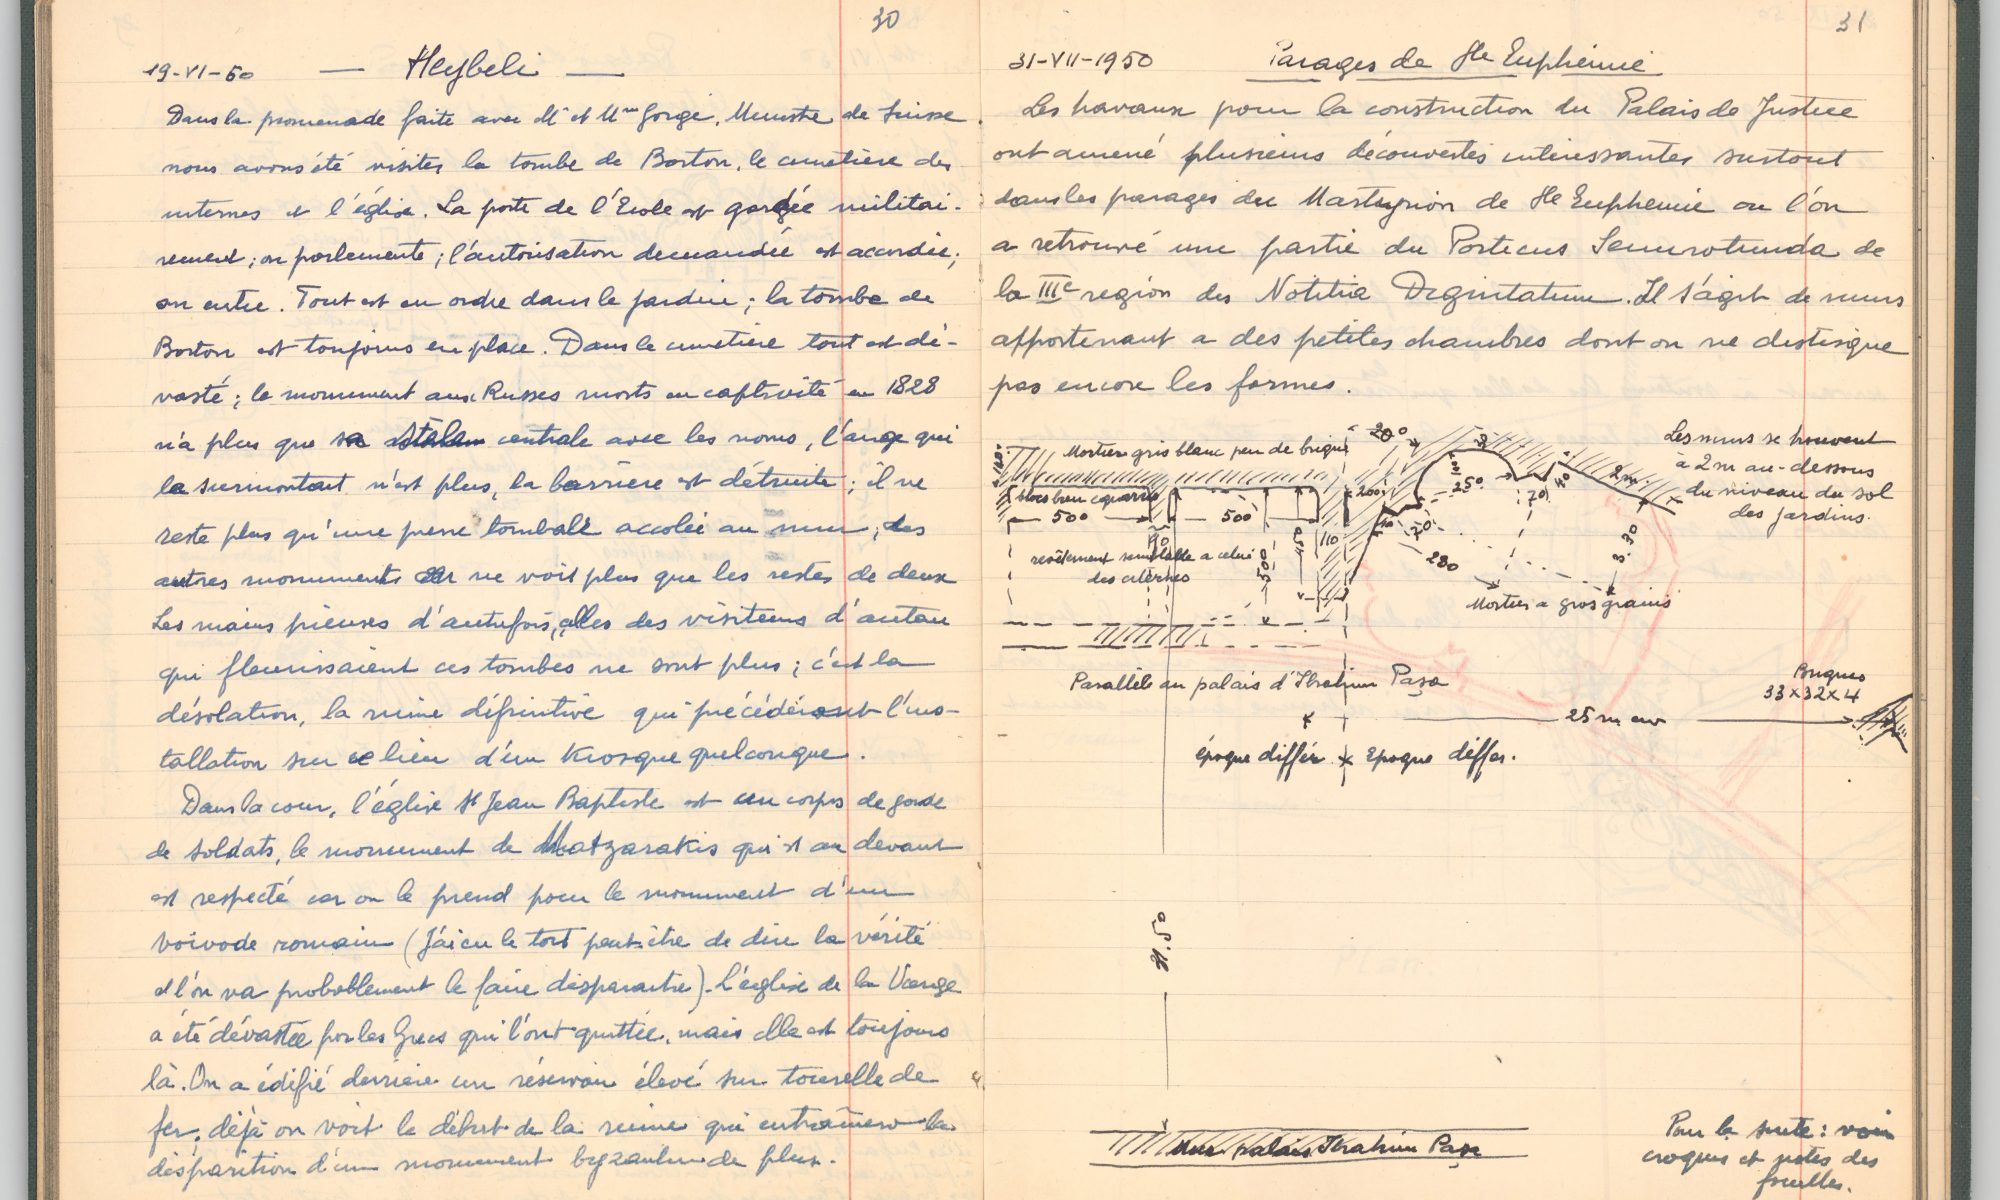 30
19-VI-50 — Heybeli —
Dans la promenade faite avec Mr et Mme Gorgé, Ministre de Suisse
nous avons été visiter la tombe de Barton, le cimetière des
internes et l'église. La porte de l'Ecole est gardée militai-
rement; on parlemente; l'autorisation demandée est accordée;
on entre. Tout est en ordre dans le jardin; la tombe de
Barton est toujours en place. Dans le cimetière tout est dé-
vasté; le monument aux Russes morts en captivité en 1828
n'a plus que sa centrale avec les noms, l'ange qui
la surmontait n'est plus, la barrière est détruite; il ne
reste plus qu'une pierre tombale accolée au mur, des
autres monuments on ne voit plus que les restes de deux
Les mains pieuses d'autrefois, celles des visiteurs d'antan
qui fleurissaient ces tombes ne sont plus; c'est la
désolation, la ruine définitive qui précédéront l'ins-
tallation sur ce lieu d'un Kiosque quelconque.
Dans la cour, l'église St Jean Baptiste est un corps de garde
de soldats, le monument de Matzarakis qui est au devant
est respecté car on le prend pour le monument d'un
voivode romain (J'ai eu le tort peut-être de dire la vérité
et l'on va probablement le faire disparaitre). L'église de la Vierge
a été dévastée par les Grecs qui l'ont quittée, mais elle est toujours
là. On a édifié derrière un réservoir élevé sur tourelle de
fer, déjà on voit le début de la ruine qui entraînera la
disparition d'un monument byzantin de plus.
31
31-VII-1950 Parages de Ste Euphémie
Les travaux pour la construction du Palais de Justice
ont amené plusieurs découvertes intéressantes surtout
dans les parages du Martyrion de Ste Euphemie ou l'on
a retrouvé une partie du Porticus Semirotunda de
la IIIe région des Notitia Dignitatum. Il s'agit de murs
appartenant a des petites chambres dont on ne distingue
pas encore les formes.
Mortier gris blanc peu de brique
blocs bien equarris
500
500
200
110
450
revêtement semblable a celui
des citernes
200
250
70
40
2m.
280
3.30
Les murs se trouvent
à 2m au-dessous
du niveau du sol
des jardins.
Mortier a gros grains
Parallèle au palais d'Ibrahim Paşa
Briques
33x32x4
25 m env
époque différ Epoque differ.
31.50
mur palais Ibrahim Paşa
Pour la suite: voir
croquis et notes des
fouilles.